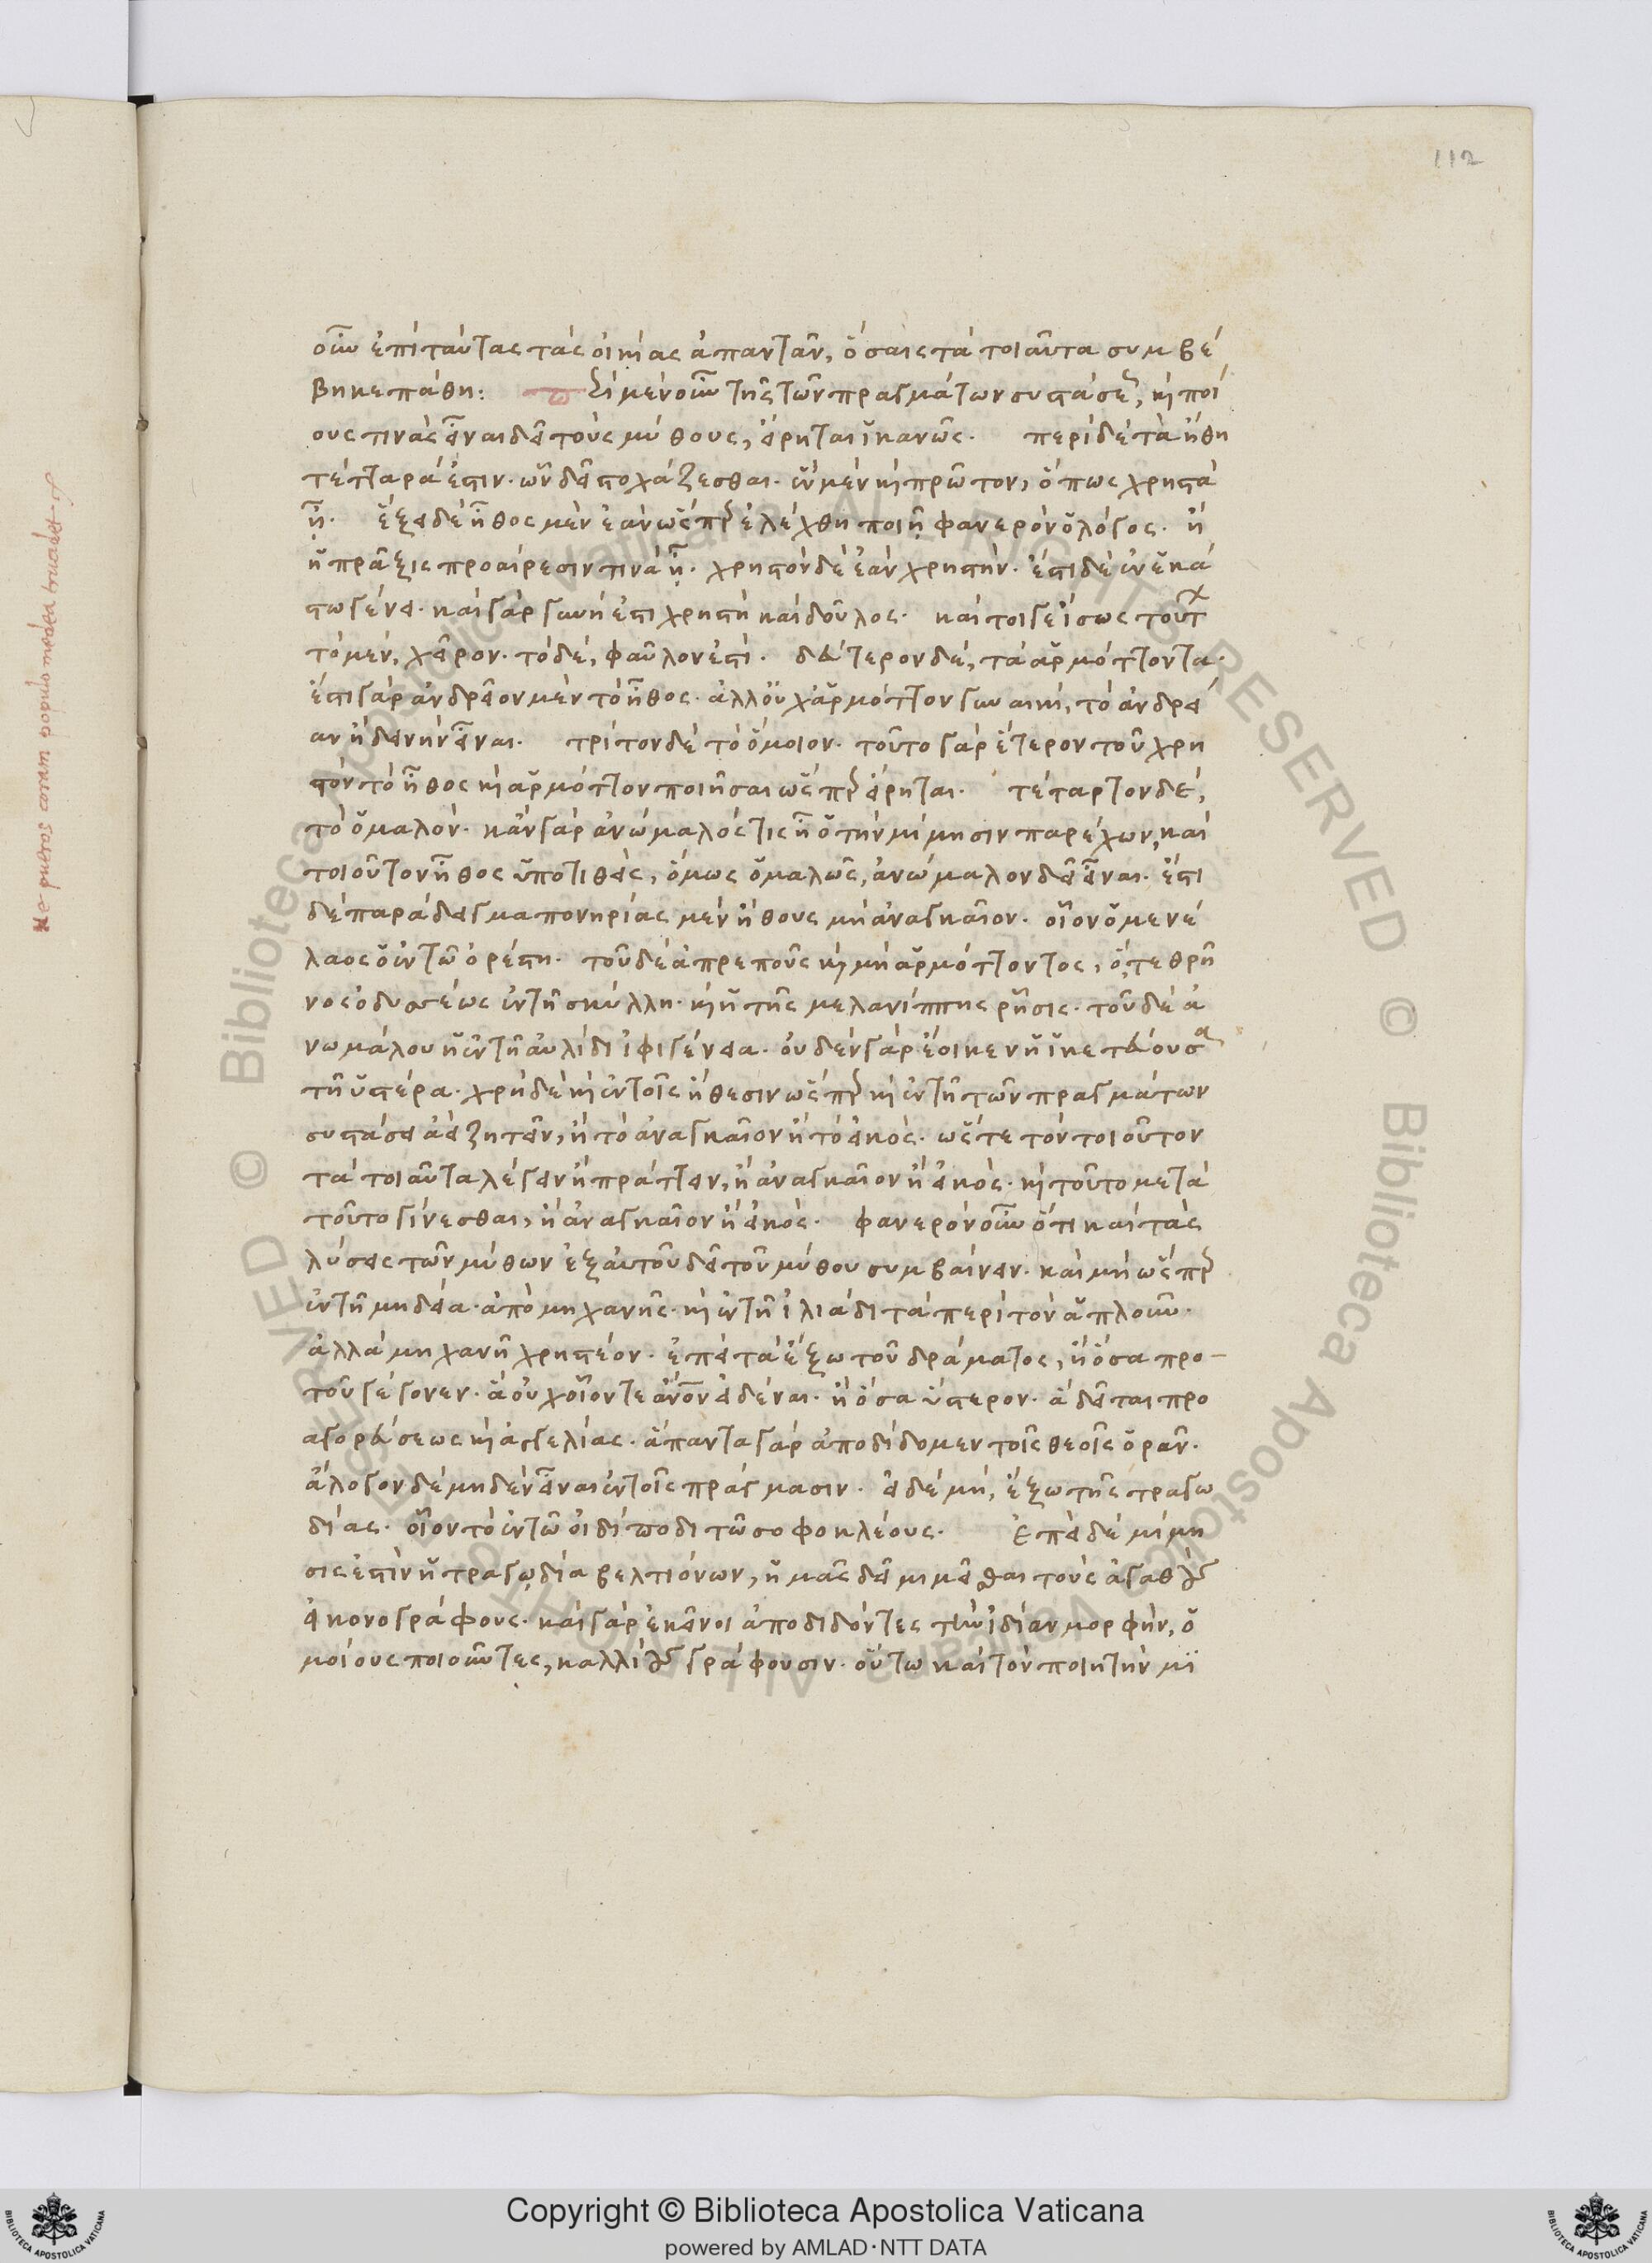 112
οὖν ἐπὶ ταύτας τὰς οἰκίας ἀπαντᾶν, ὅσαις τὰ τοιαῦτα συμβέ
βηκε πάθη: περὶ μὲν οὖν τῆς τῶν πραγμάτων συστάσεως, καὶ ποί
ους τινὰς εἶναι δεῖ τοὺς μύθους, εἴρηται ἱκανῶς. περὶ δὲ τὰ ἤθη
τέτταρά ἐστιν. ὧν δεῖ στοχάζεσθαι. ἓν μὲν καὶ πρῶτον, ὅπως χρηστὰ
ᾖ. ἕξει δὲ ἦθος μὲν ἐὰν ὥσπερ ἐλέχθη ποιῇ φανερὸν ὁ λόγος. ἢ
ἡ πρᾶξις προαίρεσίν τινα ᾖ. χρηστὸν δὲ ἐὰν χρηστήν. ἔστι δὲ ἐν ἑκά
στῳ γένει. καὶ γὰρ γυνή ἐστι χρηστὴ καὶ δοῦλος. καίτοι γε ἴσως τούτ
τὸ μὲν, χεῖρον. τὸ δὲ, φαῦλον ἐστί. δεύτερον δὲ, τὰ ἁρμόττοντα.
ἔστι γὰρ ἀνδρεῖον μὲν τὸ ἦθος. ἀλλ' οὐχ ἁρμόττον γυναικί, τὸ ἀνδρεί
αν ἢ δεινὴν εἶναι. τρίτον δὲ τὸ ὅμοιον. τοῦτο γὰρ ἕτερον τοῦ χρη
στὸν τὸ ἦθος καὶ ἁρμόττον ποιῆσαι ὥσπερ εἴρηται. τέταρτον δὲ,
τὸ ὁμαλόν. κἂν γὰρ ἀνώμαλός τις ᾖ ὁ τὴν μίμησιν παρέχων, καὶ
τοιοῦτον ἦθος ὑποτιθεὶς, ὅμως ὁμαλῶς, ἀνώμαλον δεῖ εἶναι. ἔστι
δὲ παράδειγμα πονηρίας μὲν ἤθους μὴ ἀναγκαῖον. οἷον ὁ μενέ
λαος ὁ ἐν τῷ ὀρέστῃ. τοῦ δὲ ἀπρεποῦς καὶ μὴ ἁρμόττοντος, ὅ, τε θρῆ
νος ὀδυσσέως ἐν τῇ σκύλλῃ. καὶ ἡ τῆς μελανίππης ῥῆσις. τοῦ δὲ ἀ
νωμάλου ἡ ἐν τῇ αὐλίδι ἰφιγένεια. οὐδὲν γὰρ ἔοικεν ἡ ἱκετεύουσα
τῇ ὑστέρα. χρὴ δὲ καὶ ἐν τοῖς ἤθεσιν ὥσπερ καὶ ἐν τῇ τῶν πραγμάτων
συστάσει ἀεὶ ζητεῖν, ἢ τὸ ἀναγκαῖον ἢ τὸ εἰκός. ὥστε τὸν τοιοῦτον
τὰ τοιαῦτα λέγειν ἢ πράττειν, ἢ ἀναγκαῖον ἢ εἰκός. καὶ τοῦτο μετὰ
τοῦτο γίνεσθαι, ἢ ἀναγκαῖον ἢ εἰκός. φανερὸν οὖν ὅτι καὶ τὰς
λύσεις τῶν μύθων ἐξ αὐτοῦ δεῖ τοῦ μύθου συμβαίνειν. καὶ μὴ ὥσπερ
ἐν τῇ μηδείᾳ. ἀπὸ μηχανῆς. καὶ ἐν τῇ ἰλιάδι τὰ περὶ τὸν ἅπλουν.
ἀλλὰ μηχανῇ χρηστέον. ἐπεὶ τὰ ἔξω τοῦ δράματος, ἢ ὅσα προ-
τοῦ γέγονεν. ἃ οὐχ οἷόν τε ἄνον εἰδέναι. ἢ ὅσα ὕστερον. ἃ δεῖται προ
αγορεύσεως καὶ ἀγγελίας. ἅπαντα γὰρ ἀποδίδομεν τοῖς θεοῖς ὁρᾶν.
ἄλογον δὲ μηδὲν εἶναι ἐν τοῖς πράγμασιν. εἰ δὲ μὴ, ἔξω τῆς τραγω
δίας. οἷον τὸ ἐν τῷ οἰδίποδι τῷ σοφοκλέους. Ἐπεὶ δὲ μίμη
σις ἐστὶν ἡ τραγῳδία βελτιόνων, ἡμᾶς δεῖ μιμεῖσθαι τοὺς ἀγαθοὺς
εἰκονογράφους. καὶ γὰρ ἐκεῖνοι ἀποδιδόντες τὴν ἰδίαν μορφὴν, ὁ
μοίους ποιοῦντες, καλλίους γράφουσιν. οὕτω καὶ τὸν ποιητὴν μι
Ne pueros coram populo medea trucidet
Copyright © Biblioteca Apostolica Vaticana
powered by AMLAD·NTT DATA